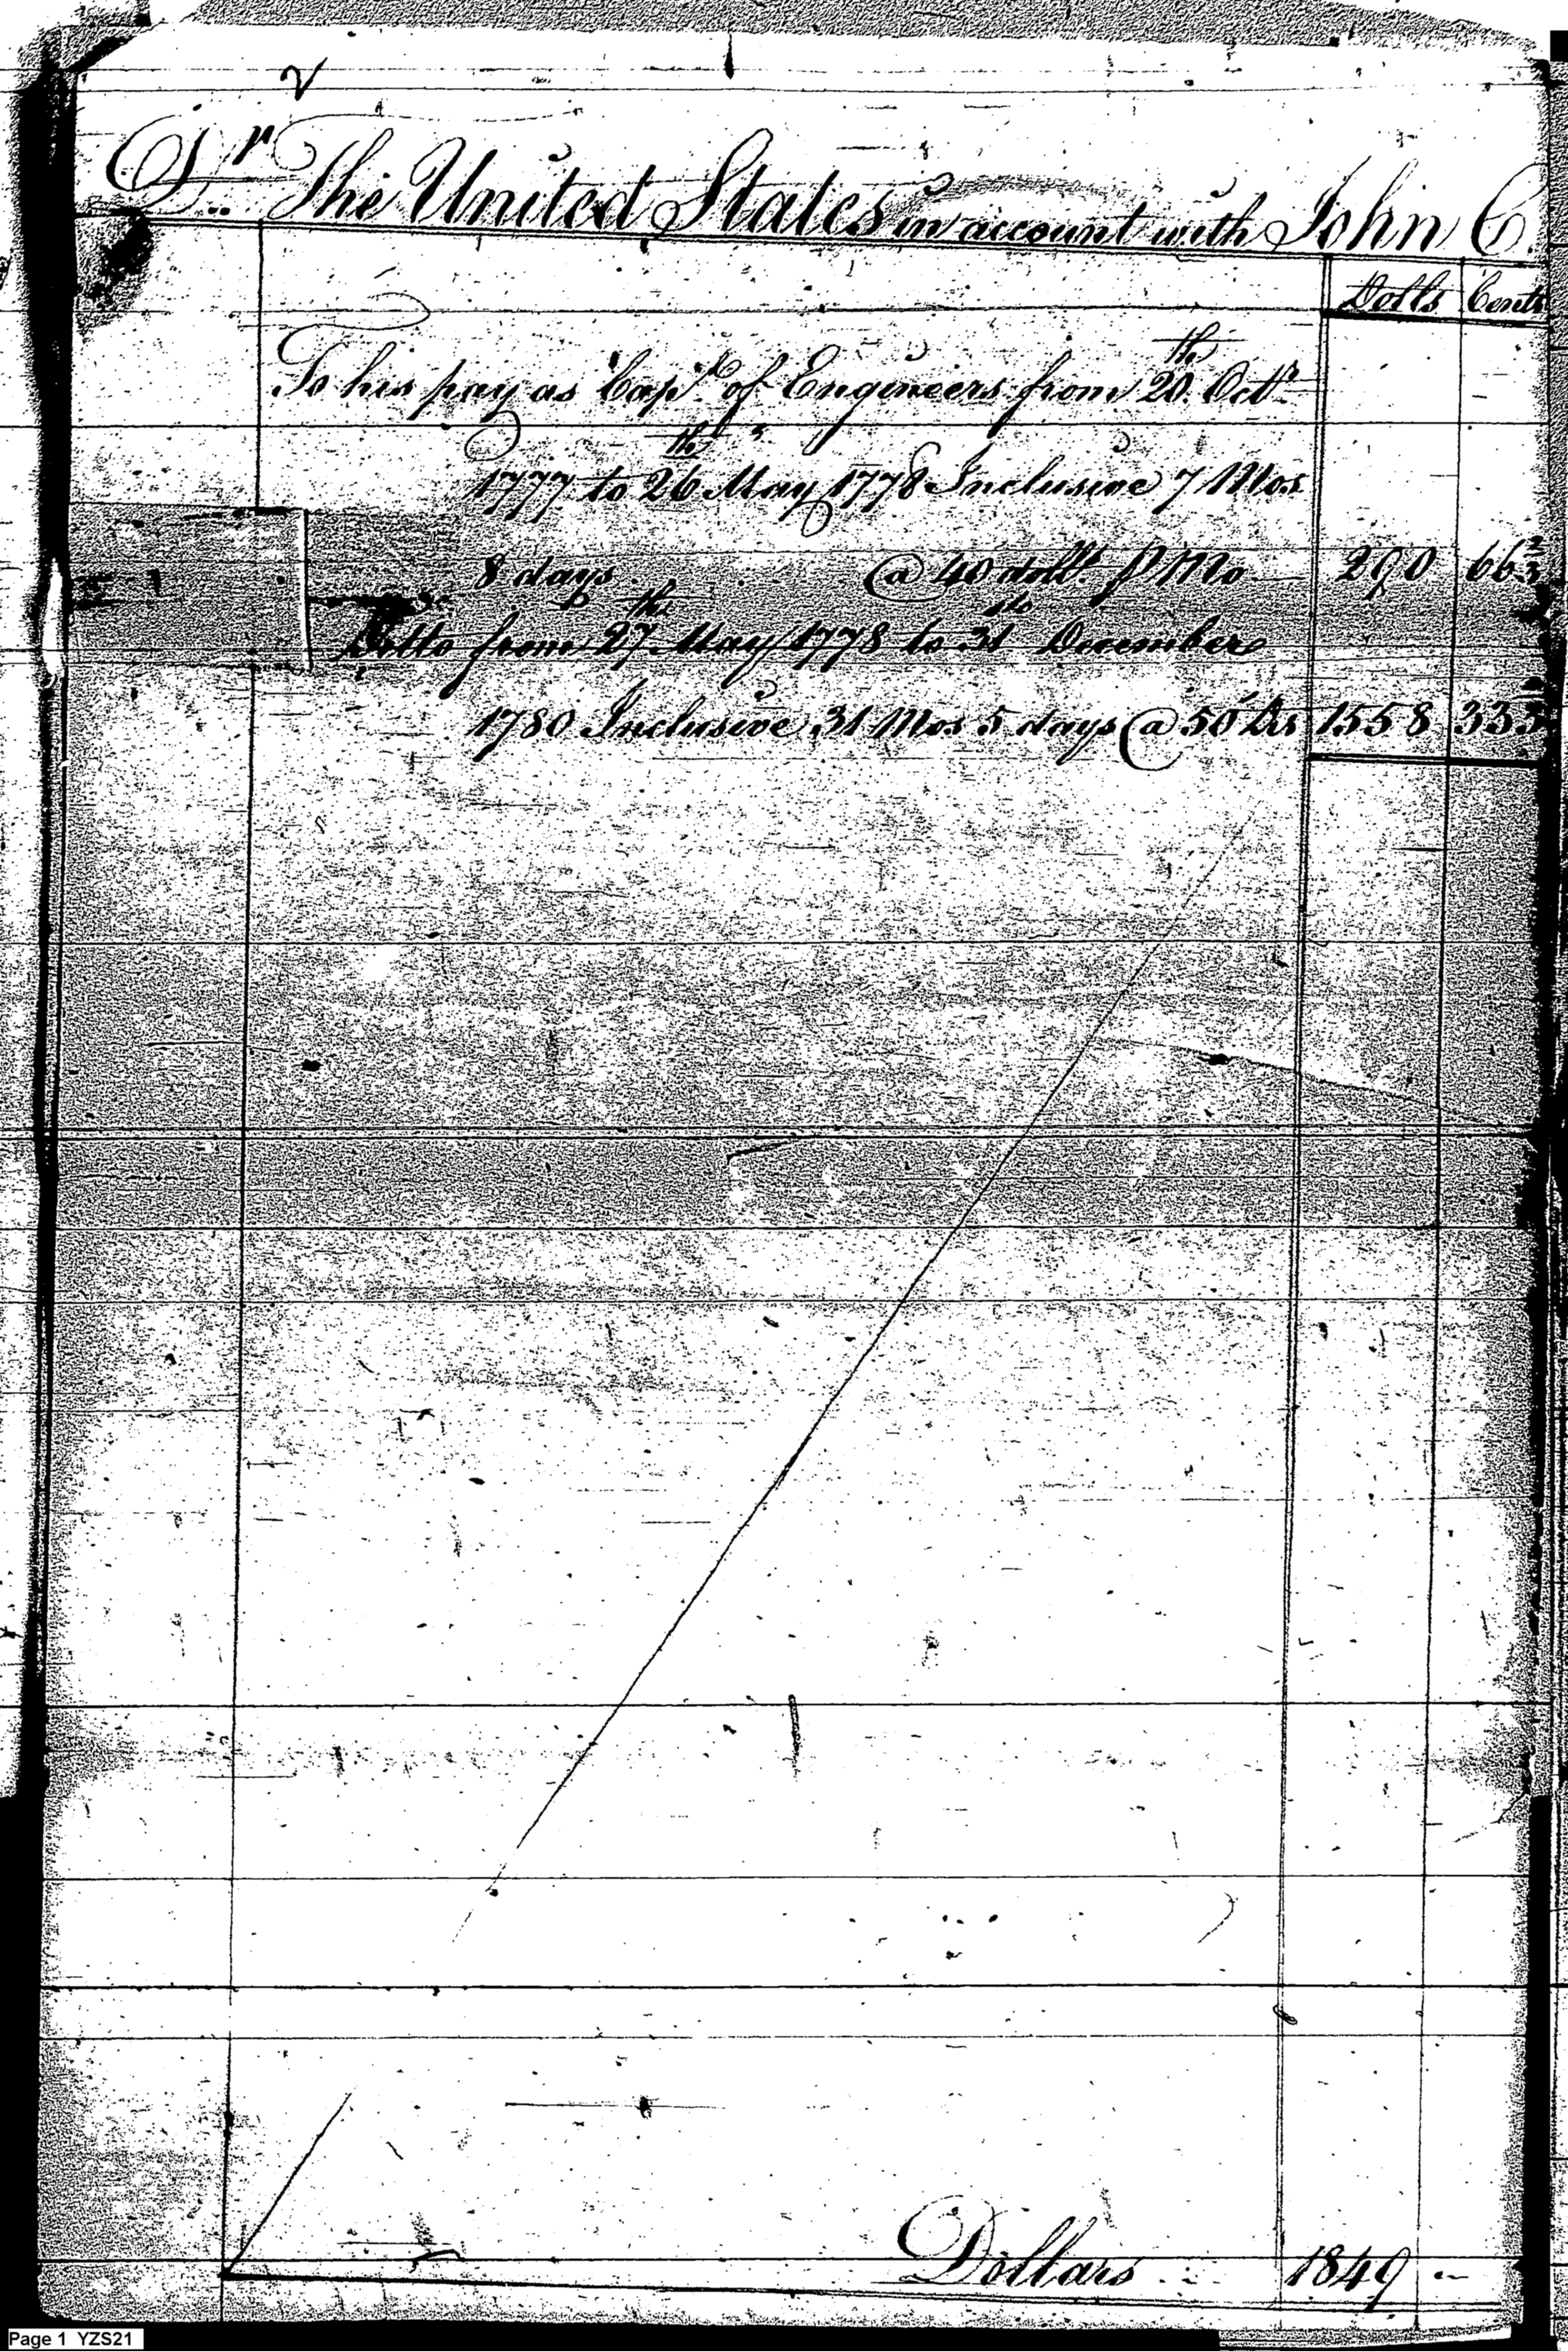 2
Dr The United States in account with John C.
Dolls Cents
To his pay as Capt. of Engineers from 20th Octr
1777 to 26th May 1778 Inclusive 7 Mos
8 days @ 40 dolls. P Mo 290 66 2/3
Ditto from 27th May 1778 to 31st December
1780 Inclusive 31 Mos 5 days @ 50 Drs 1558 33 1/3
Dollars 1849 "
Page 1 YZS21